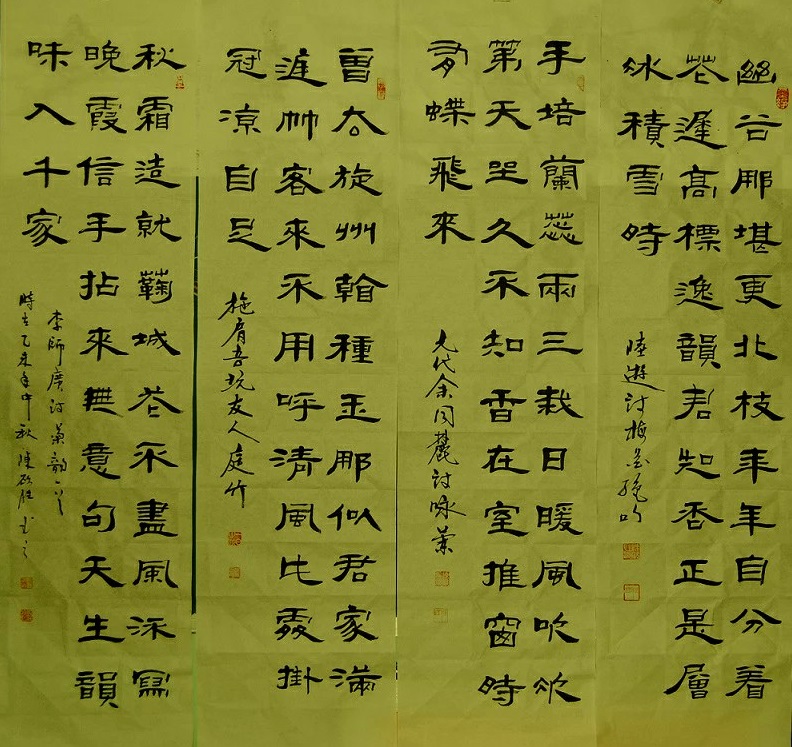 幽谷那堪更北枝年年自分着
花遲高標逸韻君知否正是層
冰積雪時
陸遊詩梅花絕句
手培蘭蕊兩三栽日暖風吹次
第天坐久不知香在室推窗時
有蝶飛來
元代余同麓詩咏蘭
曾去旋州翰種玉那似君家滿
客來不用呼清風此處掛
冠涼自足
施肩吾玩友人庭竹
秋霜造就鞠城花不盡風流寫
晚霞信手拈來無意句天生韻
味入千家
李師廣詩菊韻
時在乙未年中秋陳書之